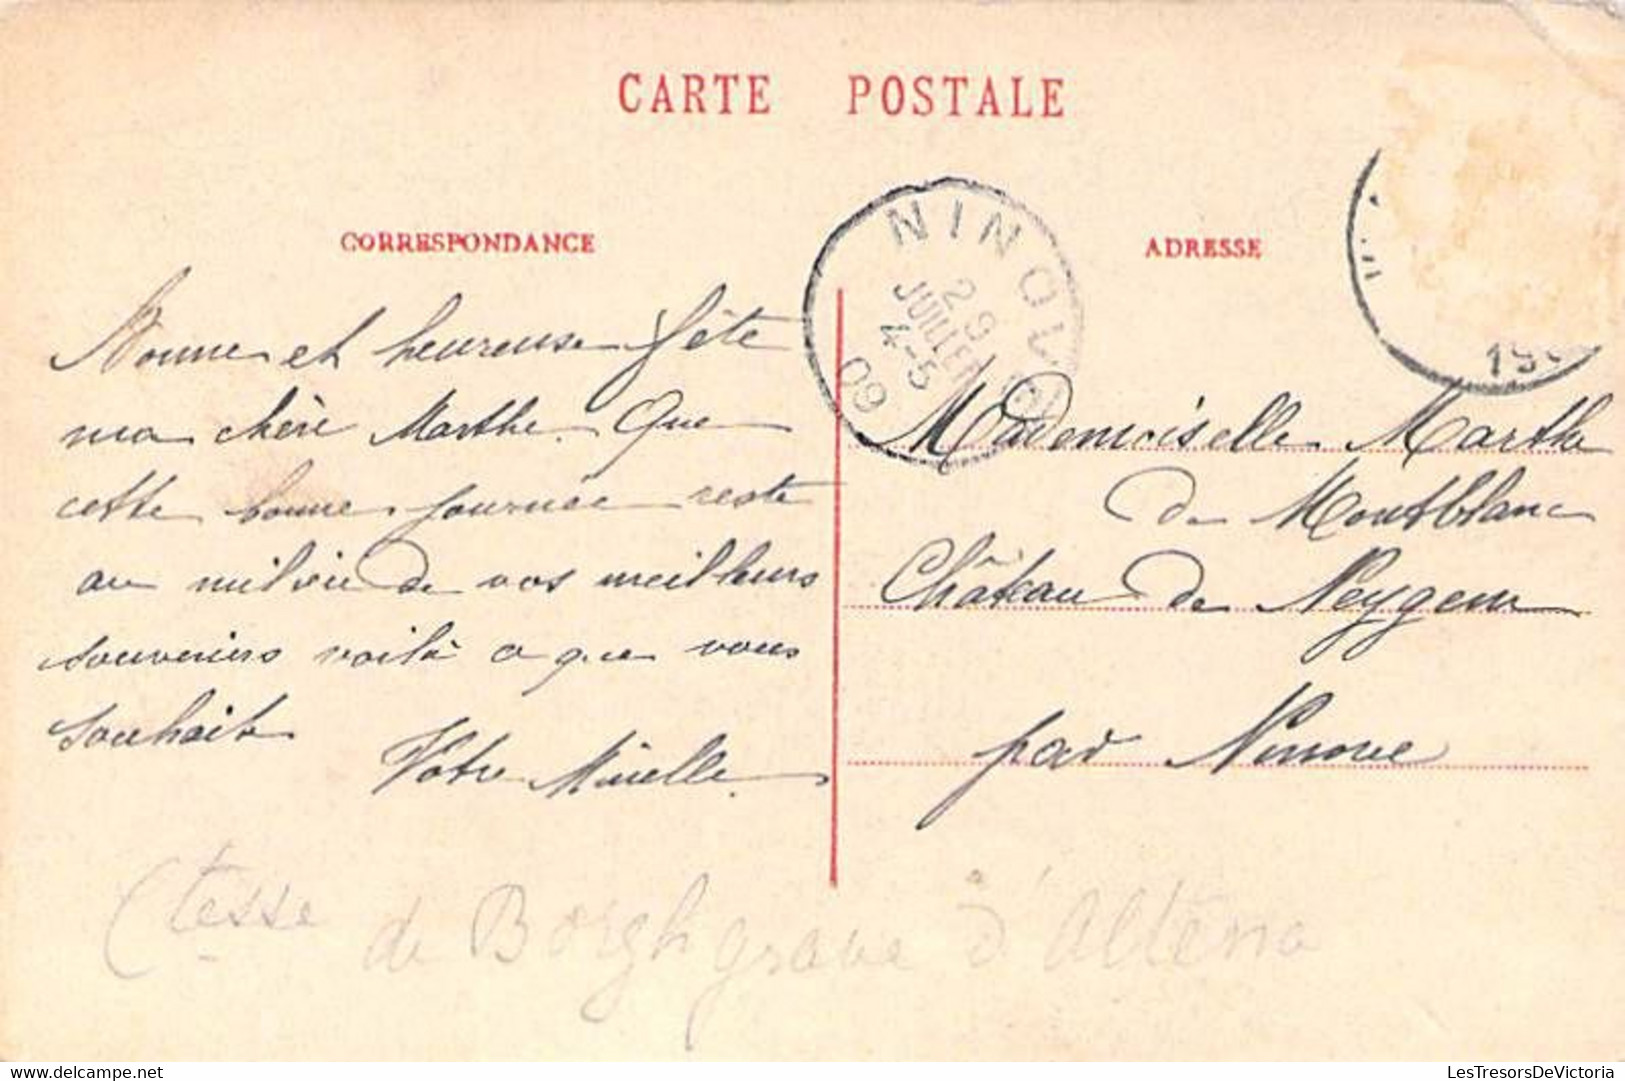 CARTE POSTALE
CORRESPONDANCE
ADRESSE
NINOVE
29
JUILLET
4-5
09
19
Bonne et heureuse fête
ma chère Marthe. Que
cette bonne journée reste
au milieu de vos meilleurs
souvenirs voilà ce que vous
souhaite
Votre Mirelle.
Mademoiselle Marthe
de Montblanc
Château de Neygem
par Ninove
Ctesse de Borghgrave d'Altena
delcampe.net
LesTresorsDeVictoria